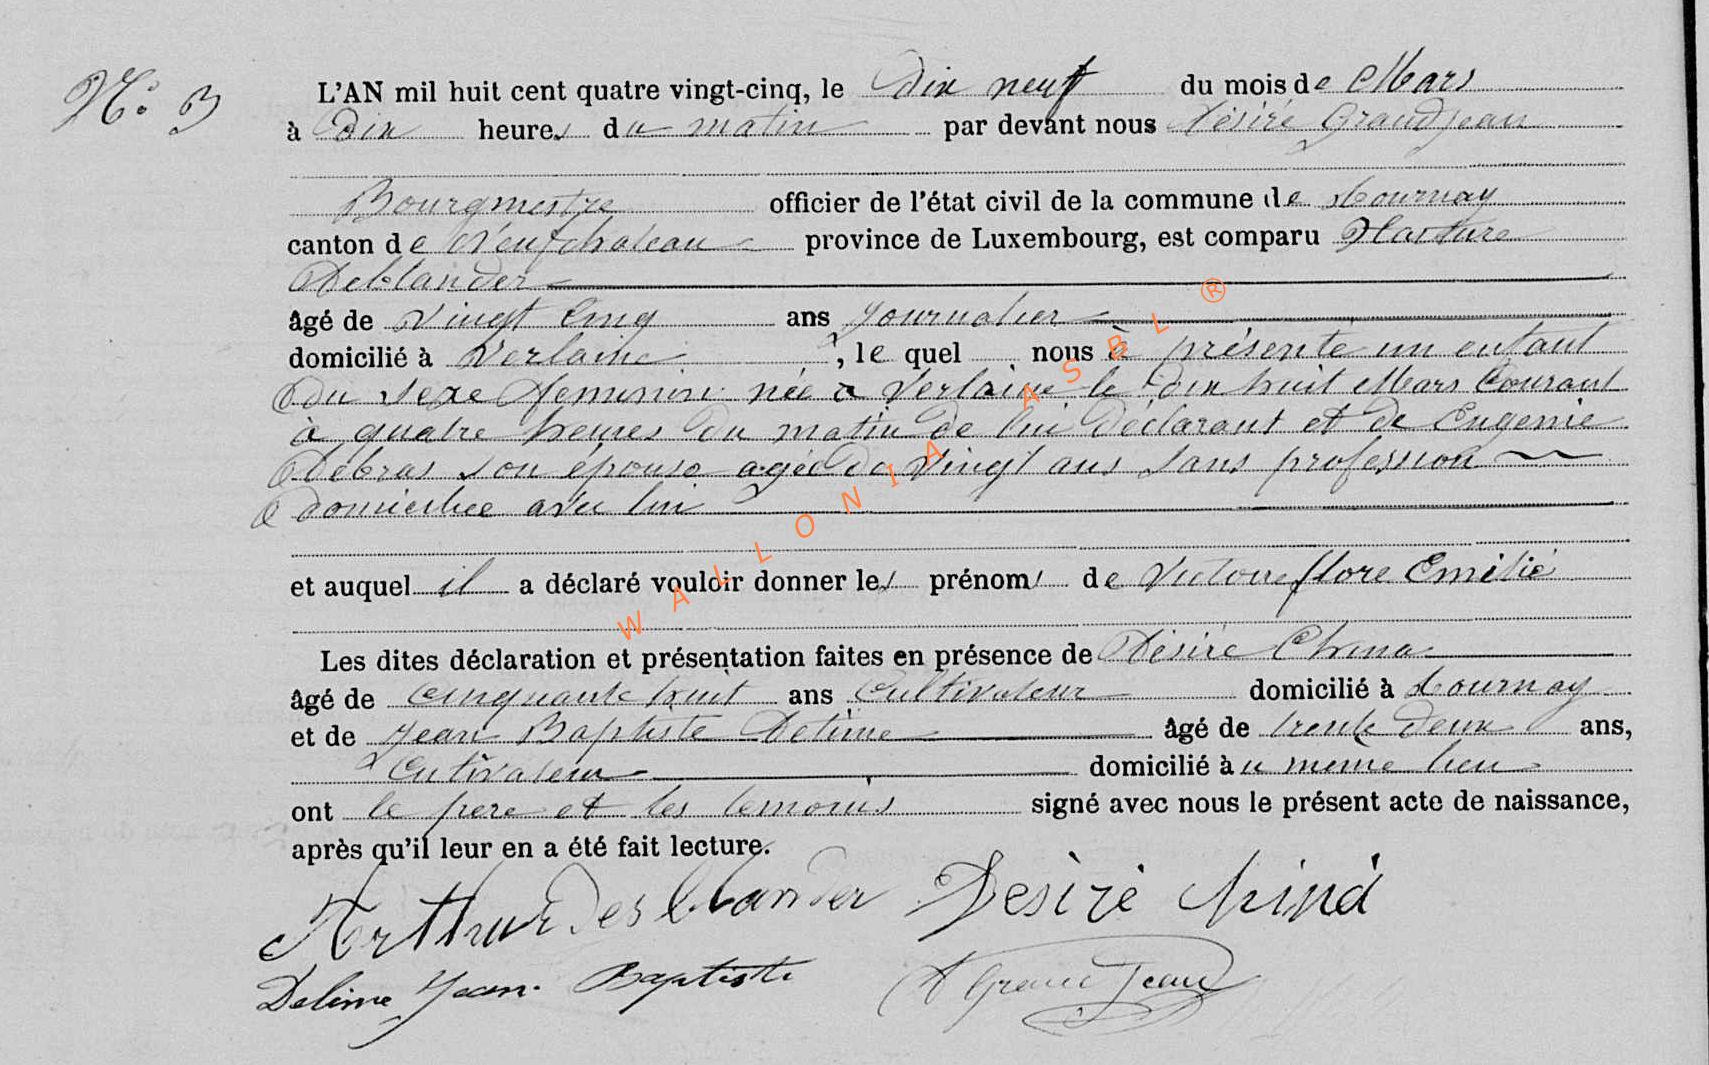 N° 3
L'AN mil huit cent quatre vingt-cinq, le Dix neuf du mois de Mars
à Dix heures du matin par devant nous Désiré Grandjean
Bourgmestre officier de l'état civil de la commune de Tournay
canton de Neufchateau province de Luxembourg, est comparu
Deblander
âgé de Vingt Cinq ans Journalier
domicilié à Verlaine, le quel nous à présenté un enfant
du sexe feminin née a Verlaine le dix huit Mars Courant
à quatre heures du matin de lui déclarant et de Eugenie
Debras son épouse agée de Vingt ans sans profession
domiciliee avec lui
et auquel il a déclaré vouloir donner les prénoms de Victoire flore Emélie
Les dites déclaration et présentation faites en présence de Désiré China
âgé de Cinquante huit ans Cultivateur domicilié à Tournay
et de Jean Baptiste Delime âgé de trente deux ans,
Cultivateur domicilié àu meme lieu
ont le pere et les temoins signé avec nous le présent acte de naissance,
après qu'il leur en a été fait lecture.
Arthur Desblander Desiré Chiná
Delime Jean Baptiste D Grand Jean
WALLONIA ASBL ®